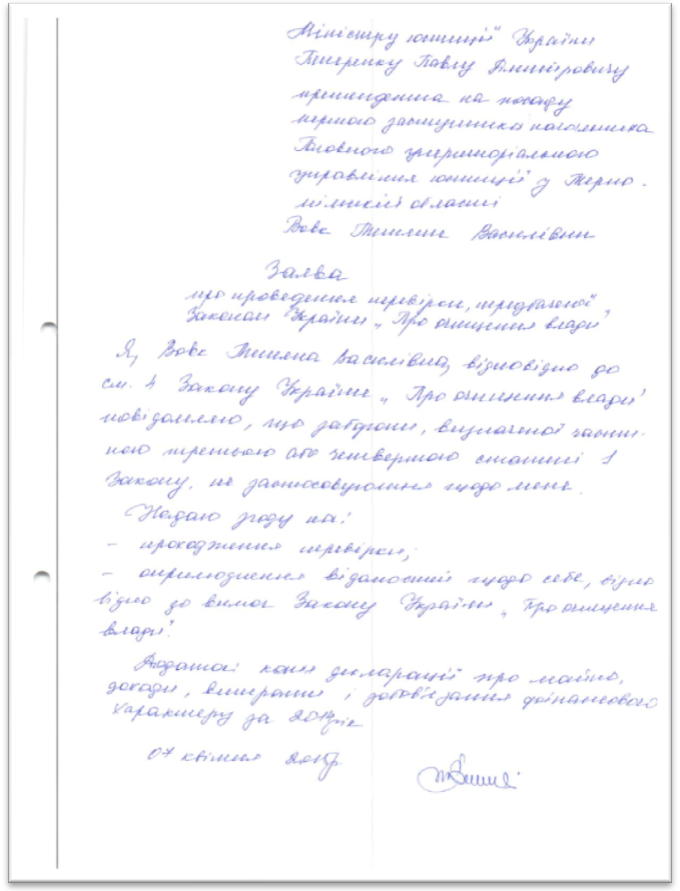 Міністру юстиції України
Петренку Павлу Дмитровичу
претендента на посаду
першого заступника начальника
Головного територіального
управління юстиції у Терно-
пільській області
Вовк Тетяни Василівни
Заява
про проведення перевірки, передбаченої
Законом України „Про очищення влади"
Я, Вовк Тетяна Василівна, відповідно до
ст. 4 Закону України „Про очищення влади"
повідомляю, що заборони, визначені части-
ною третьою або четвертою статті 1
Закону, не застосовуються щодо мене.
Надаю згоду на:
- проходження перевірки;
- оприлюднення відомостей щодо себе, відпо
відно до вимог Закону України „Про очищення
влади".
Додаток: копія декларації про майно,
доходи, витрати і зобов'язання фінансового
характеру за рік
07 квітня